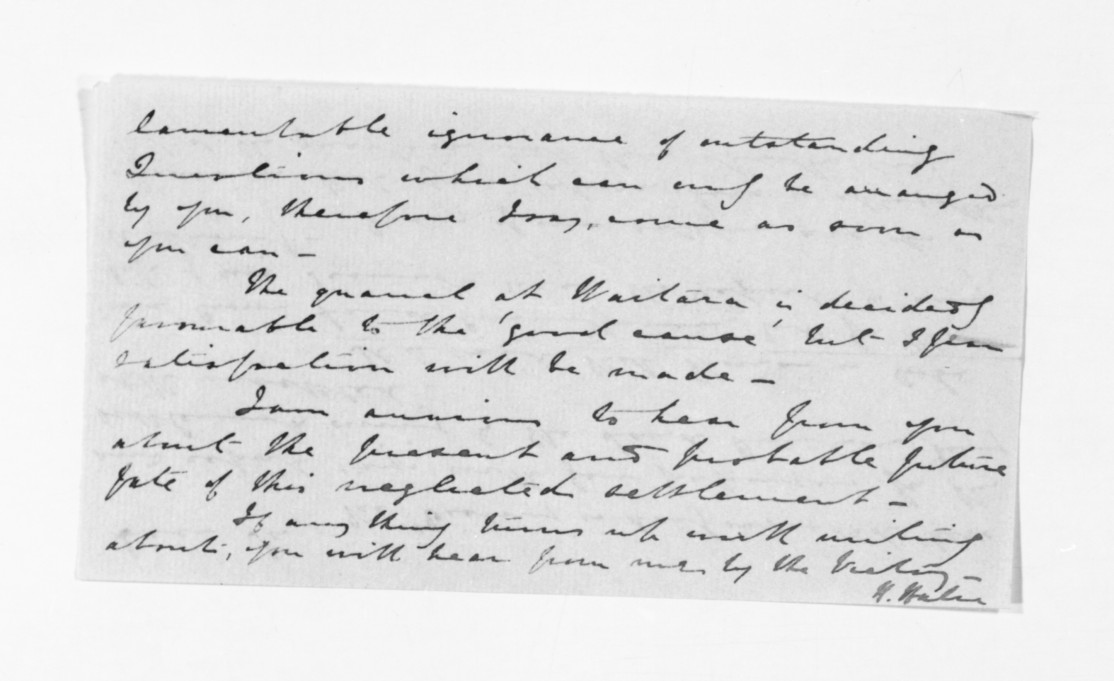 lamentable ignorance of outstanding
Questions which can only be arranged
by you, therefore I say, come as soon as
you can -
The quarrel at Waitara is decidedly
favourable to the 'good cause' but I fear
satisfaction will be made -
I am anxious to hear from you
about the present and probable future
fate of this neglected settlement -
If any thing turns up worth writing
about, you will hear from me by the Victory -
H. Halse